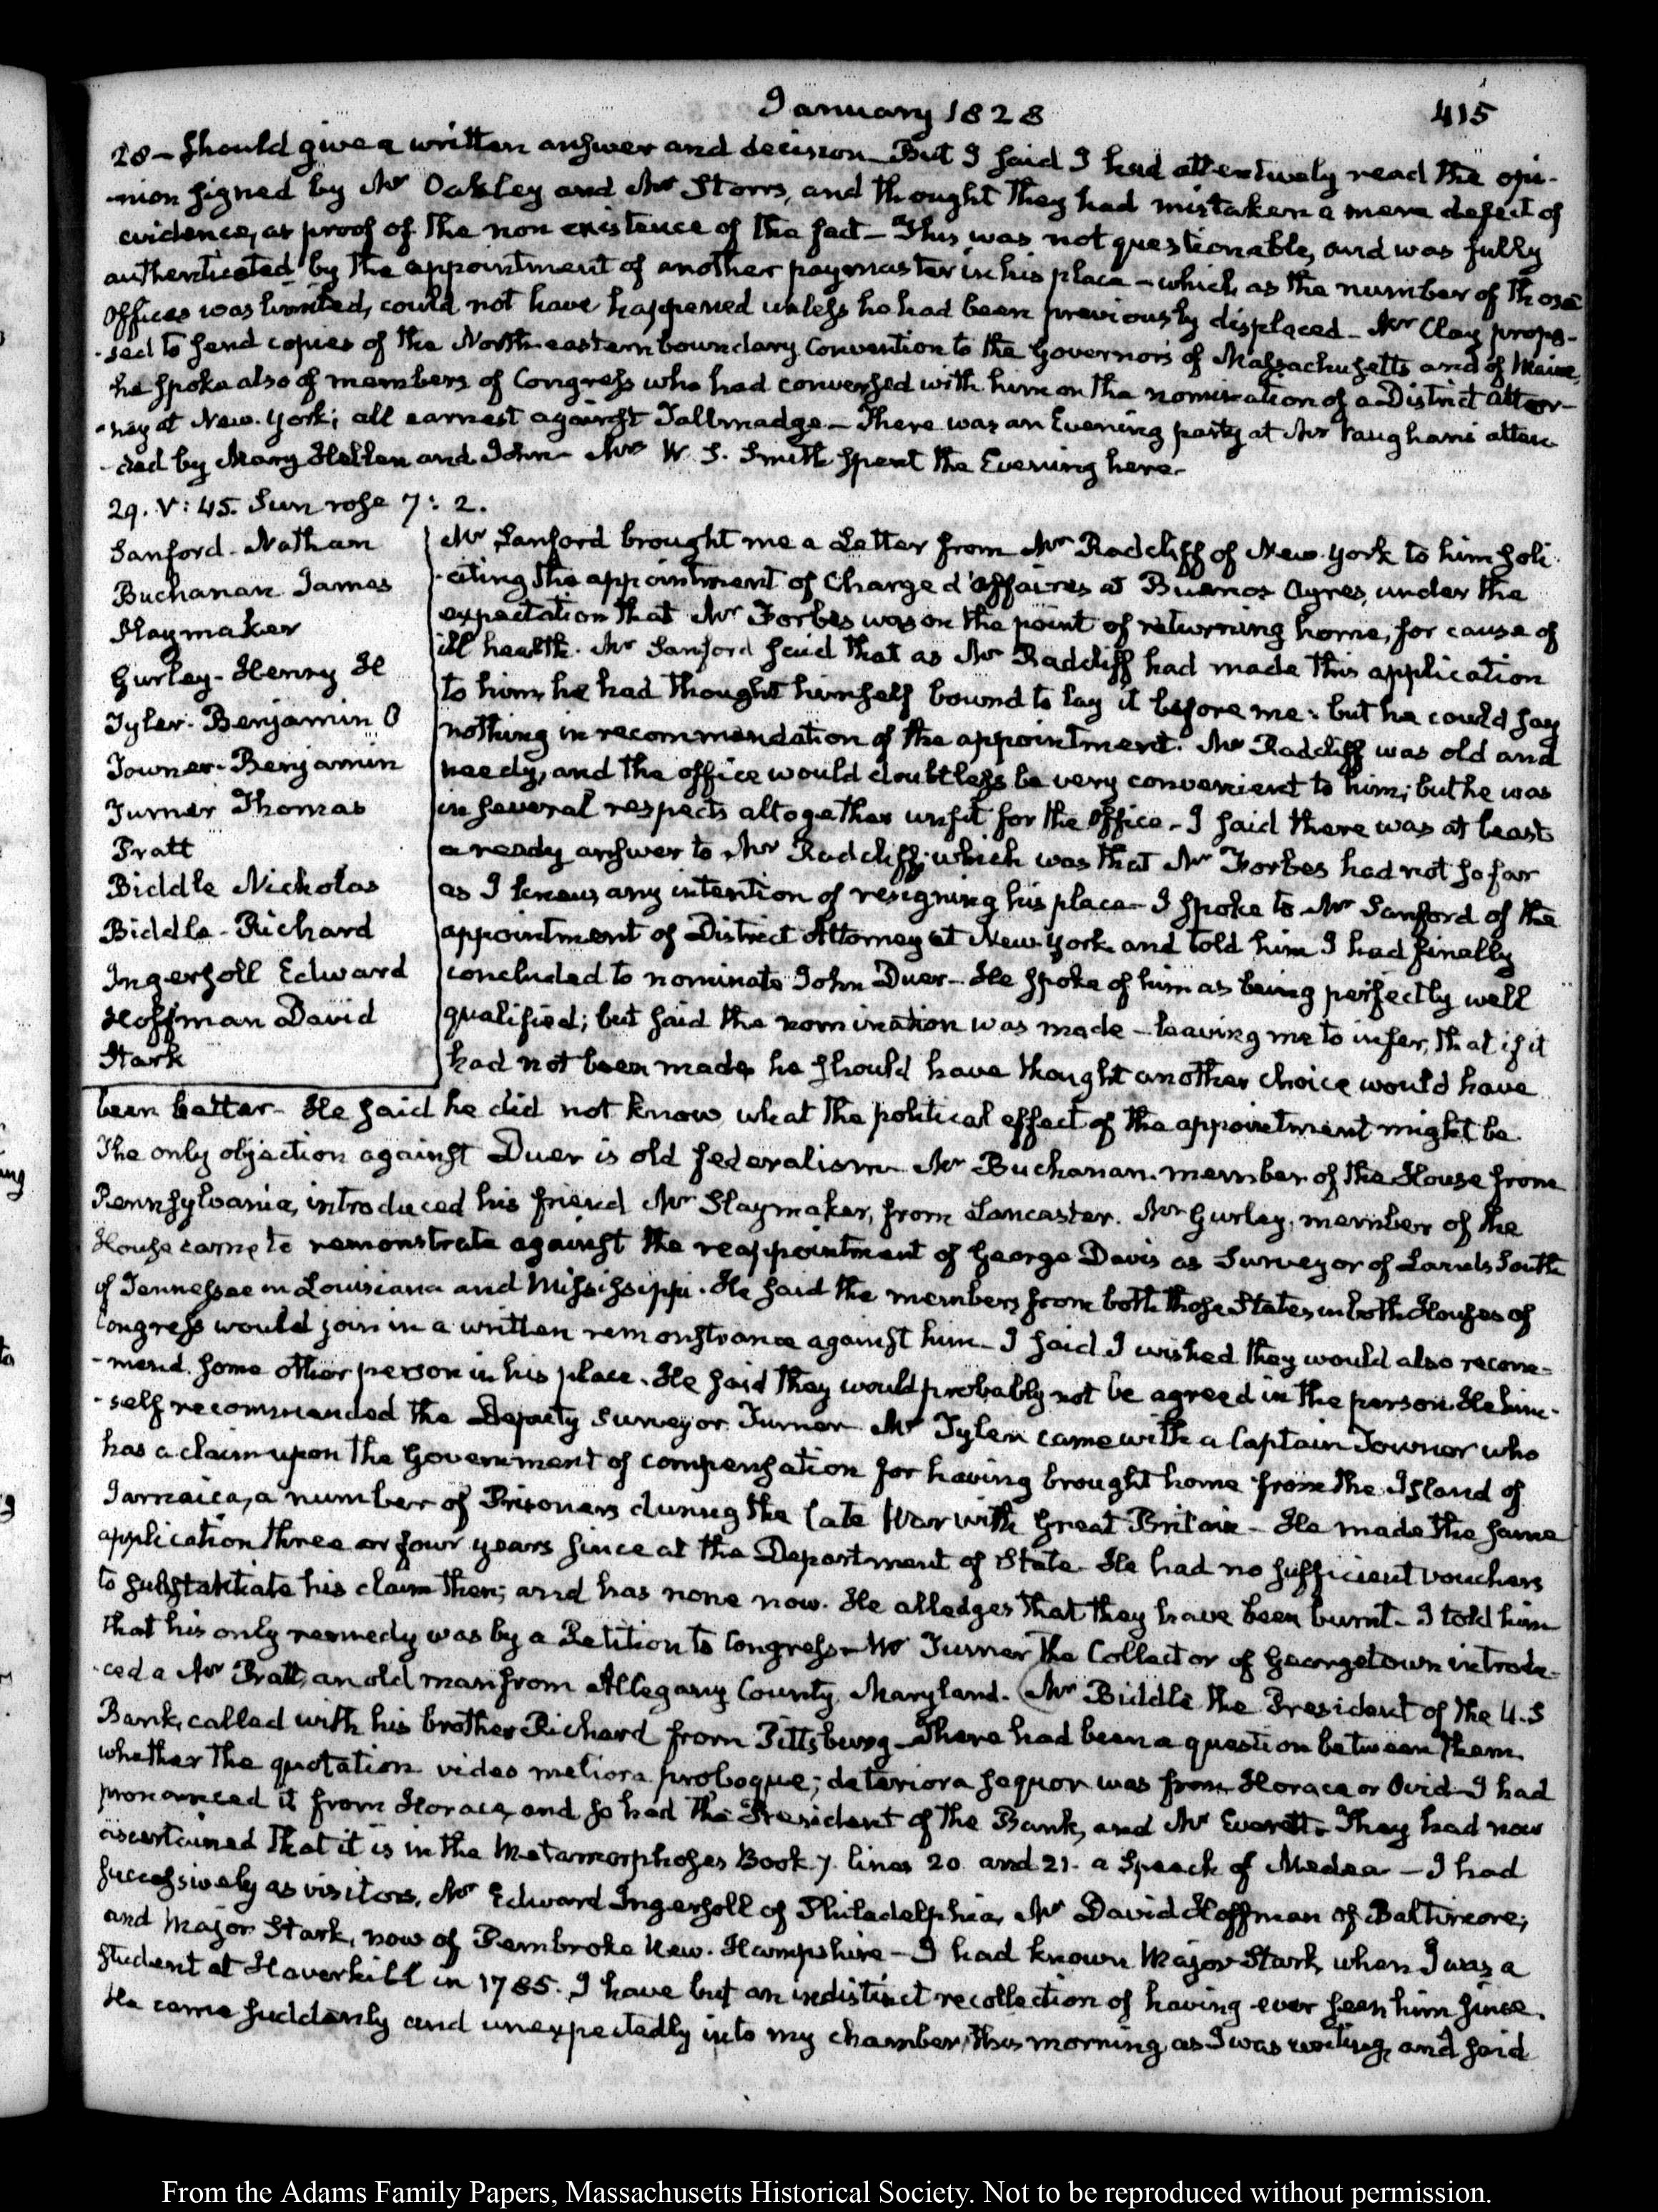 January 1828
415
28 – should give a written answer and decision – But I said I had attentively read the opi-
-nion signed by Mr Oakley and Mr Storrs, and thought they had mistaken a mere defect of
evidence, as proof of the non existence of the fact – This was not questionable, and was fully
authenticated by the appointment of another paymaster in his place – which as the number of those
Offices was limited, could not have happened unless he had been previously displaced – Mr Clay propo-
-sed to send copies of the North eastern boundary Convention to the Governors of Massachusetts and of Maine,
he spoke also of members of Congress who had conversed with him on the nomination of a District Attor-
-ney at New-York; all earnest against Tallmadge – There was an Evening party at Mr Vaughan's atten
-ded by Mary Hellen and John – Mrs W. S. Smith spent the Evening here –
29. V: 45. Sun rose 7: 2.
Sanford – Nathan
Buchanan James
Slaymaker
Gurley – Henry H
Tyler – Benjamin O
Towner – Benjamin
Turner Thomas
Pratt
Biddle Nicholas
Biddle – Richard
Ingersoll Edward
Hoffman David
Stark
Mr Sanford brought me a Letter from Mr Radcliff of New-York to him soli-
-citing the appointment of Charge d'Affaires at Buenos Ayres, under the
expectation that Mr Forbes was on the point of returning home, for cause of
ill health. Mr Sanford said that as Mr Radcliff had made this application
to him, he had thought himself bound to lay it before me: but he could say
nothing in recommendation of the appointment. Mr Radcliff was old and
needy, and the office would doubtless be very convenient to him; but he was
in several respects altogether unfit for the Office – I said there was at least
a ready answer to Mr Radcliff; which was that Mr Forbes had not so far
as I knew any intention of resigning his place – I spoke to Mr Sanford of the
appointment of District Attorney at New-York and told him I had finally
concluded to nominate John Duer – He spoke of him as being perfectly well
qualified; but said the nomination was made – leaving me to infer, that if it
had not been made, he should have thought another choice would have
been better – He said he did not know what the political effect of the appointment might be.
The only objection against Duer is old federalism – Mr Buchanan, member of the House from
Pennsylvania, introduced his friend Mr Slaymaker, from Lancaster. Mr Gurley, member of the
House came to remonstrate against the reappointment of George Davis as Surveyor of Lands South
of Tennessee in Louisiana and Mississippi. He said the members from both those States, in both Houses of
Congress would join in a written remonstrance against him – I said I wished they would also recom-
-mend some other person in his place. He said they would probably not be agreed in the person. He him-
-self recommended the Deputy Surveyor Turner – Mr Tyler came with a Captain Towner who
has a claim upon the Government of compensation for having brought home from the Island of
Jamaica, a number of Prisoners during the late War with Great Britain – He made the same
application three or four years since at the Department of State – He had no sufficient vouchers
to substantiate his claim then; and has none now. He alledges that they have been burnt – I told him
that his only remedy was by a Petition to Congress – Mr Turner the Collector of Georgetown introdu-
-ced a Mr Pratt, an old man from Allegany County, Maryland. Mr Biddle the President of the U.S
Bank, called with his brother Richard from Pittsburg – There had been a question between them
whether the quotation video meliora proboque; deteriora sequor was from Horace or Ovid – I had
pronounced it from Horace, and so had the President of the Bank, and Mr Everett – They had now
ascertained that it is in the Metamorphoses Book 7. lines 20 and 21. a Speech of Medea – I had
successively as visitors, Mr Edward Ingersoll of Philadelphia, Mr David Hoffman of Baltimore;
and Major Stark, now of Pembroke New-Hampshire – I had known Major Stark, when I was a
student at Haverhill in 1785. I have but an indistinct recollection of having ever seen him since.
He came suddenly and unexpectedly into my chamber, this morning, as I was writing, and said
From the Adams Family Papers, Massachusetts Historical Society. Not to be reproduced without permission.